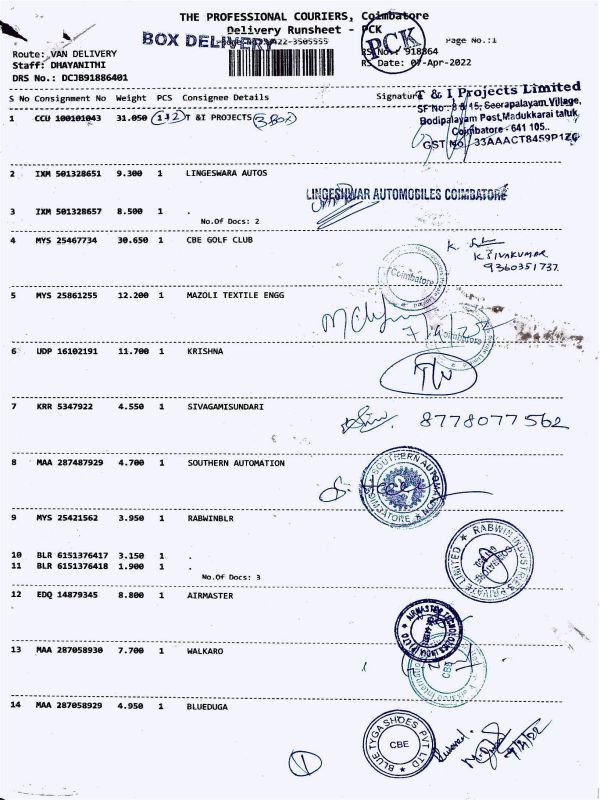 THE PROFESSIONAL COURIERS, Coimbatore
Delivery Runsheet - PCK
BOX DELIVERY
PCK
Page No.:1
Route: VAN DELIVERY
918864
Staff: DHAYANITHI
RS Date: 07-Apr-2022
DRS No.: DCJB91886401
S No Consignment No Weight PCS Consignee Details Signature
T & I Projects Limited
SF No: 8 & 15, Seerapalayam Village,
Bodipalayam Post, Madukkarai taluk,
Coimbatore - 641 105..
GST No. 33AAACT8459P1ZG
1 CCU 100101043 31.050 1+2 T &I PROJECTS 3 BOX
2 IXM 501328651 9.300 1 LINGESWARA AUTOS
LINGESHWAR AUTOMOBILES COIMBATORE
3 IXM 501328657 8.500 1 .
No.Of Docs: 2
4 MYS 25467734 30.650 1 CBE GOLF CLUB
K SIVAKUMAR
9360351737
Coimbatore
5 MYS 25861255 12.200 1 MAZOLI TEXTILE ENGG
Coimbatore
6 UDP 16102191 11.700 1 KRISHNA
7 KRR 5347922 4.550 1 SIVAGAMISUNDARI
8778077562
8 MAA 287487929 4.700 1 SOUTHERN AUTOMATION
SOUTHERN AUTOMATION
COIMBATORE
9 MYS 25421562 3.950 1 RABWINBLR
RABWIN INDUSTRIES PRIVATE LIMITED
10 BLR 6151376417 3.150 1 .
11 BLR 6151376418 1.900 1 .
No.Of Docs: 3
12 EDQ 14879345 8.800 1 AIRMASTER
13 MAA 287058930 7.700 1 WALKARO
CBE
14 MAA 287058929 4.950 1 BLUEDUGA
BLUE TYGA SHOES PVT LTD
CBE
Received.
1